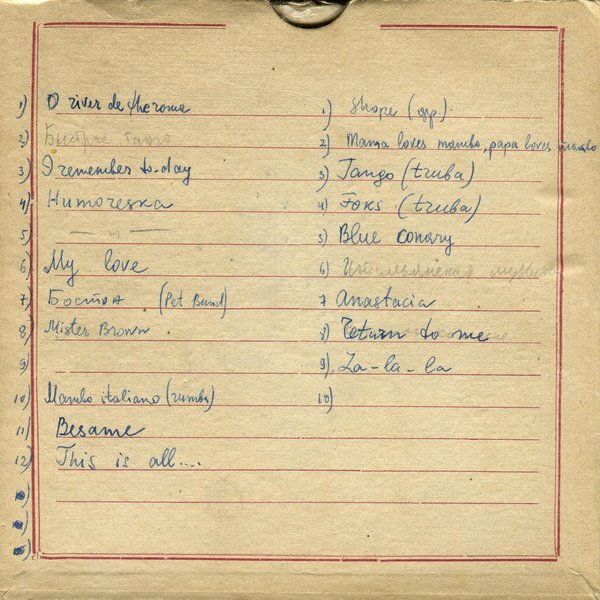 1) O river de
2) Быстрое танго
3) I remember to-day
4) Humoreska
5) — " —
6) My love
7) Бостон (Pet Bund)
8) Mister Brown
9)
10) Mambo italiano (rumba)
11) Besame
12) This is all....
1) Shope (орр.)
2) Mama loves mambo, papa loves mambo
3) Tango (truba)
4) Foks (truba)
5) Blue conary
6) Итальянская
7 Anastacia
8) Return to me
9) La-la-la
10)